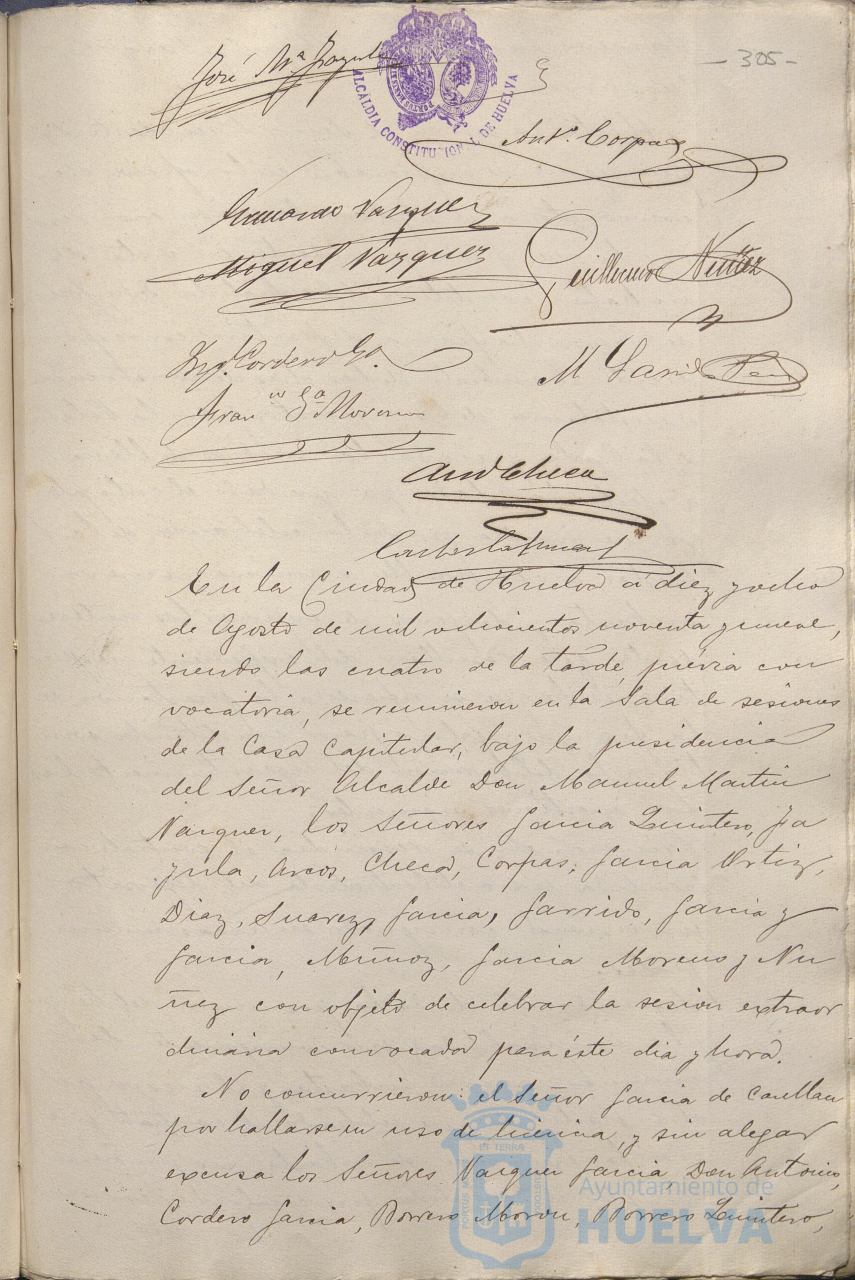 - 305 -
José Mª
ALCALDIA CONSTITUCIONAL DE HUELVA
Antº Corpas
Eduardo Vazquez
Miguel Vazquez
Guillermo Nuñez
Cordero Ga.
M Garrido
Franco Ga Moreno
And Checa
En la Ciudad de Huelva á diez y ocho
de Agosto de mil ochocientos noventa y nueve,
siendo las cuatro de la tarde, prévia con
vocatoria, se reunieron en la Sala de sesiones
de la Casa Capitular, bajo la presidencia
del Señor Alcalde Don Manuel Martin
Vazquez, los Señores Garcia Quintero, Ja
zula, Arcos, Checa, Corpas, Garcia Ortiz,
Diaz, Suarez, Garcia, Garrido, Garcia y
Garcia, Muñoz, Garcia Moreno y Nu
ñez con objeto de celebrar la sesion extraor
dinaria convocada para éste dia y hora.
No concurrieron: el Señor Garcia de
por hallarse en uso de licencia, y sin alegar
excusa los Señores Vazquez Garcia Don Antonio,
Cordero Garcia, Borrero Moron, Borrero Quintero,
Ayuntamiento de
HUELVA